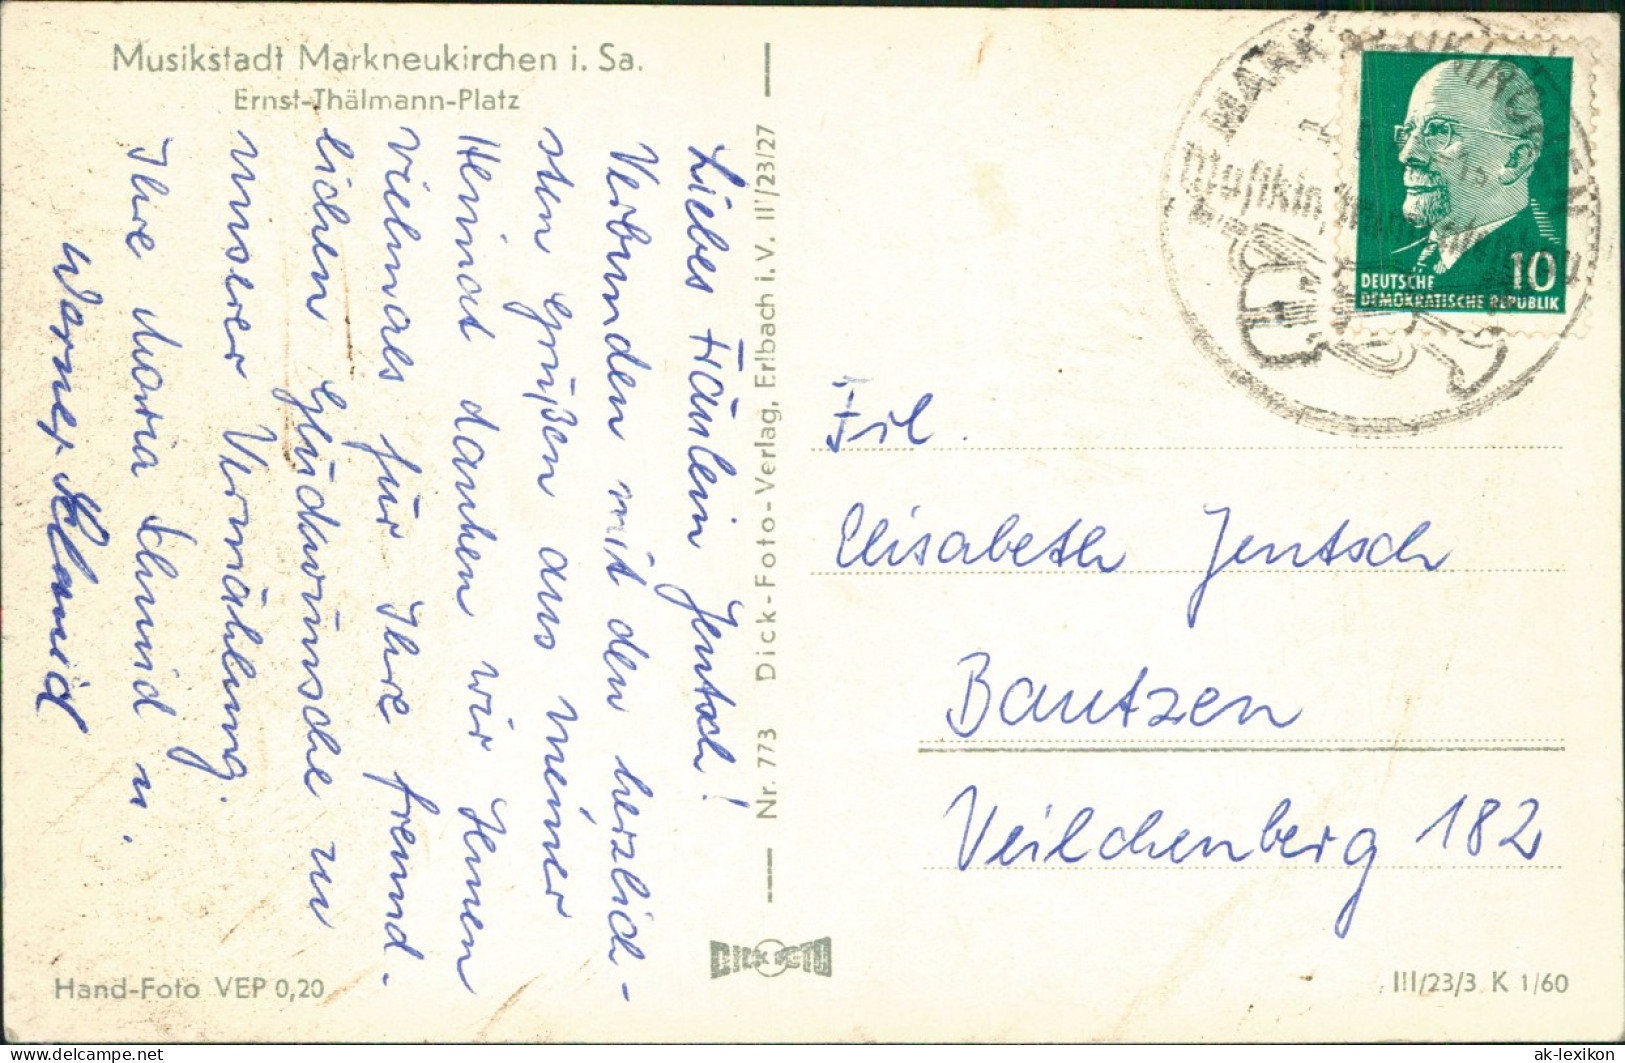 Musikstadt Markneukirchen i. Sa.
Ernst-Thälmann-Platz
Liebes Fräulein Jentsch!
Verbunden mit den herzlich-
sten Grüßen aus meiner
Heimat danken wir Ihnen
vielmals für Ihre freund-
lichen Glückwünsche zu
unserer Vermählung.
Ihre Maria Schmid u.
Werner Schmid
Hand-Foto VEP 0,20
Nr. 773 Dick-Foto-Verlag, Erlbach i. V. II/23/27
DICK FOTO
MARKNEUKIRCHEN
DEUTSCHE
DEMOKRATISCHE REPUBLIK
10
Frl.
Elisabeth Jentsch
Bautzen
Veilchenberg 182
III/23/3 K 1/60
ak-lexikon
www.delcampe.net